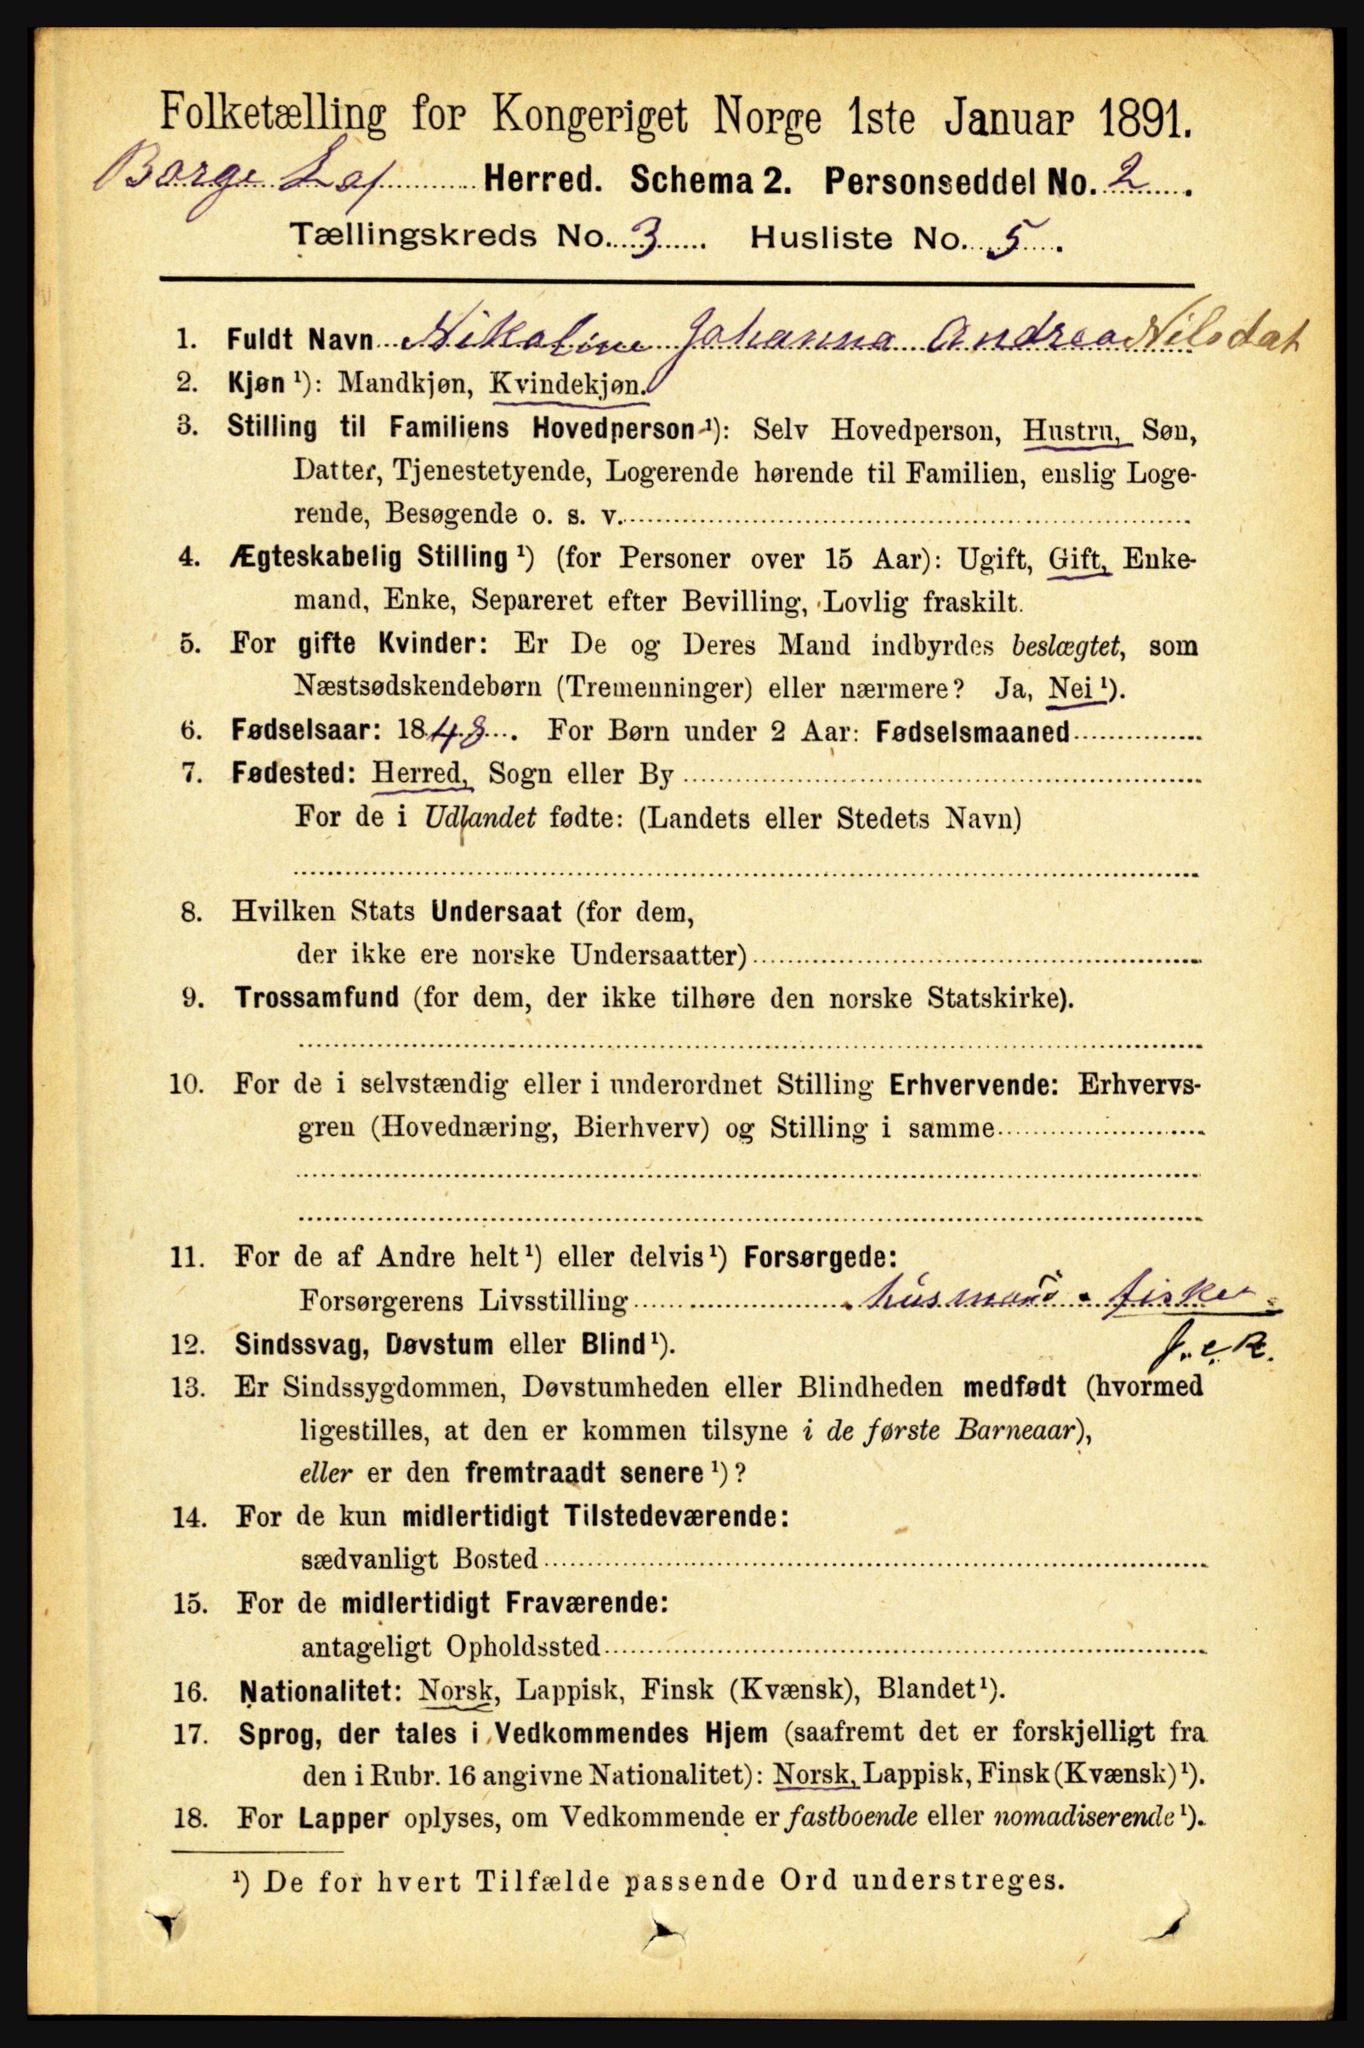 Folketælling for Kongeriget Norge 1ste Januar 1891.
Borge Lof Herred. Schema 2. Personseddel No. 2.
Tællingskreds No. 3 Husliste No. 5.
1. Fuldt Navn Nikoline Johanna Andrea Nilsdat
2. Kjøn ¹): Mandkjøn, Kvindekjøn.
3. Stilling til Familiens Hovedperson ¹): Selv Hovedperson, Hustru, Søn,
Datter, Tjenestetyende, Logerende hørende til Familien, enslig Loge-
rende, Besøgende o. s. v.
4. Ægteskabelig Stilling ¹) (for Personer over 15 Aar): Ugift, Gift, Enke-
mand, Enke, Separeret efter Bevilling, Lovlig fraskilt.
5. For gifte Kvinder: Er De og Deres Mand indbyrdes beslægtet, som
Næstsødskendebørn (Tremenninger) eller nærmere? Ja, Nei ¹).
6. Fødselsaar: 1848. For Børn under 2 Aar: Fødselsmaaned
7. Fødested: Herred, Sogn eller By
For de i Udlandet fødte: (Landets eller Stedets Navn)
8. Hvilken Stats Undersaat (for dem,
der ikke ere norske Undersaatter)
9. Trossamfund (for dem, der ikke tilhøre den norske Statskirke).
10. For de i selvstændig eller i underordnet Stilling Erhvervende: Erhvervs-
gren (Hovednæring, Bierhverv) og Stilling i samme
11. For de af Andre helt ¹) eller delvis ¹) Forsørgede:
Forsørgerens Livsstilling husmand - fisker
12. Sindssvag, Døvstum eller Blind ¹). f. e. R.
13. Er Sindssygdommen, Døvstumheden eller Blindheden medfødt (hvormed
ligestilles, at den er kommen tilsyne i de første Barneaar),
eller er den fremtraadt senere ¹)?
14. For de kun midlertidigt Tilstedeværende:
sædvanligt Bosted
15. For de midlertidigt Fraværende:
antageligt Opholdssted
16. Nationalitet: Norsk, Lappisk, Finsk (Kvænsk), Blandet ¹).
17. Sprog, der tales i Vedkommendes Hjem (saafremt det er forskjelligt fra
den i Rubr. 16 angivne Nationalitet): Norsk, Lappisk, Finsk (Kvænsk) ¹).
18. For Lapper oplyses, om Vedkommende er fastboende eller nomadiserende ¹).
¹) De for hvert Tilfælde passende Ord understreges.